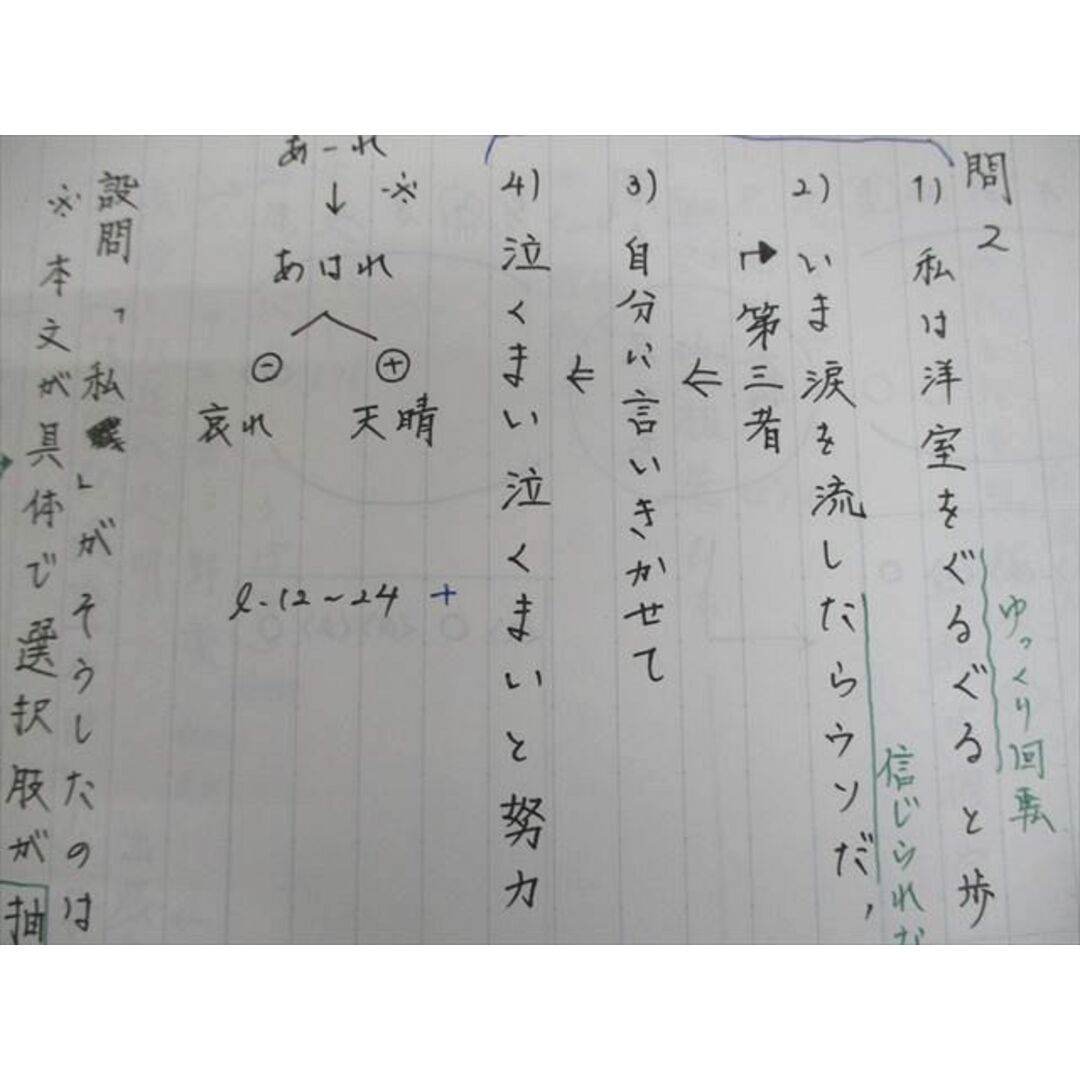 問2
1) 私は洋室をぐるぐると歩
ゆっくり回転
2) いま涙を流したらウソだ，
信じられな
→第三者
⇐
3) 自分に言いきかせて
⇐
4) 泣くまい泣くまいと努力
あーれ
↓ ※
あはれ
⊕ 天晴
⊖ 哀れ
l.12～24 +
設問「私」がそうしたのは
※ 本文が具体で選択肢が抽